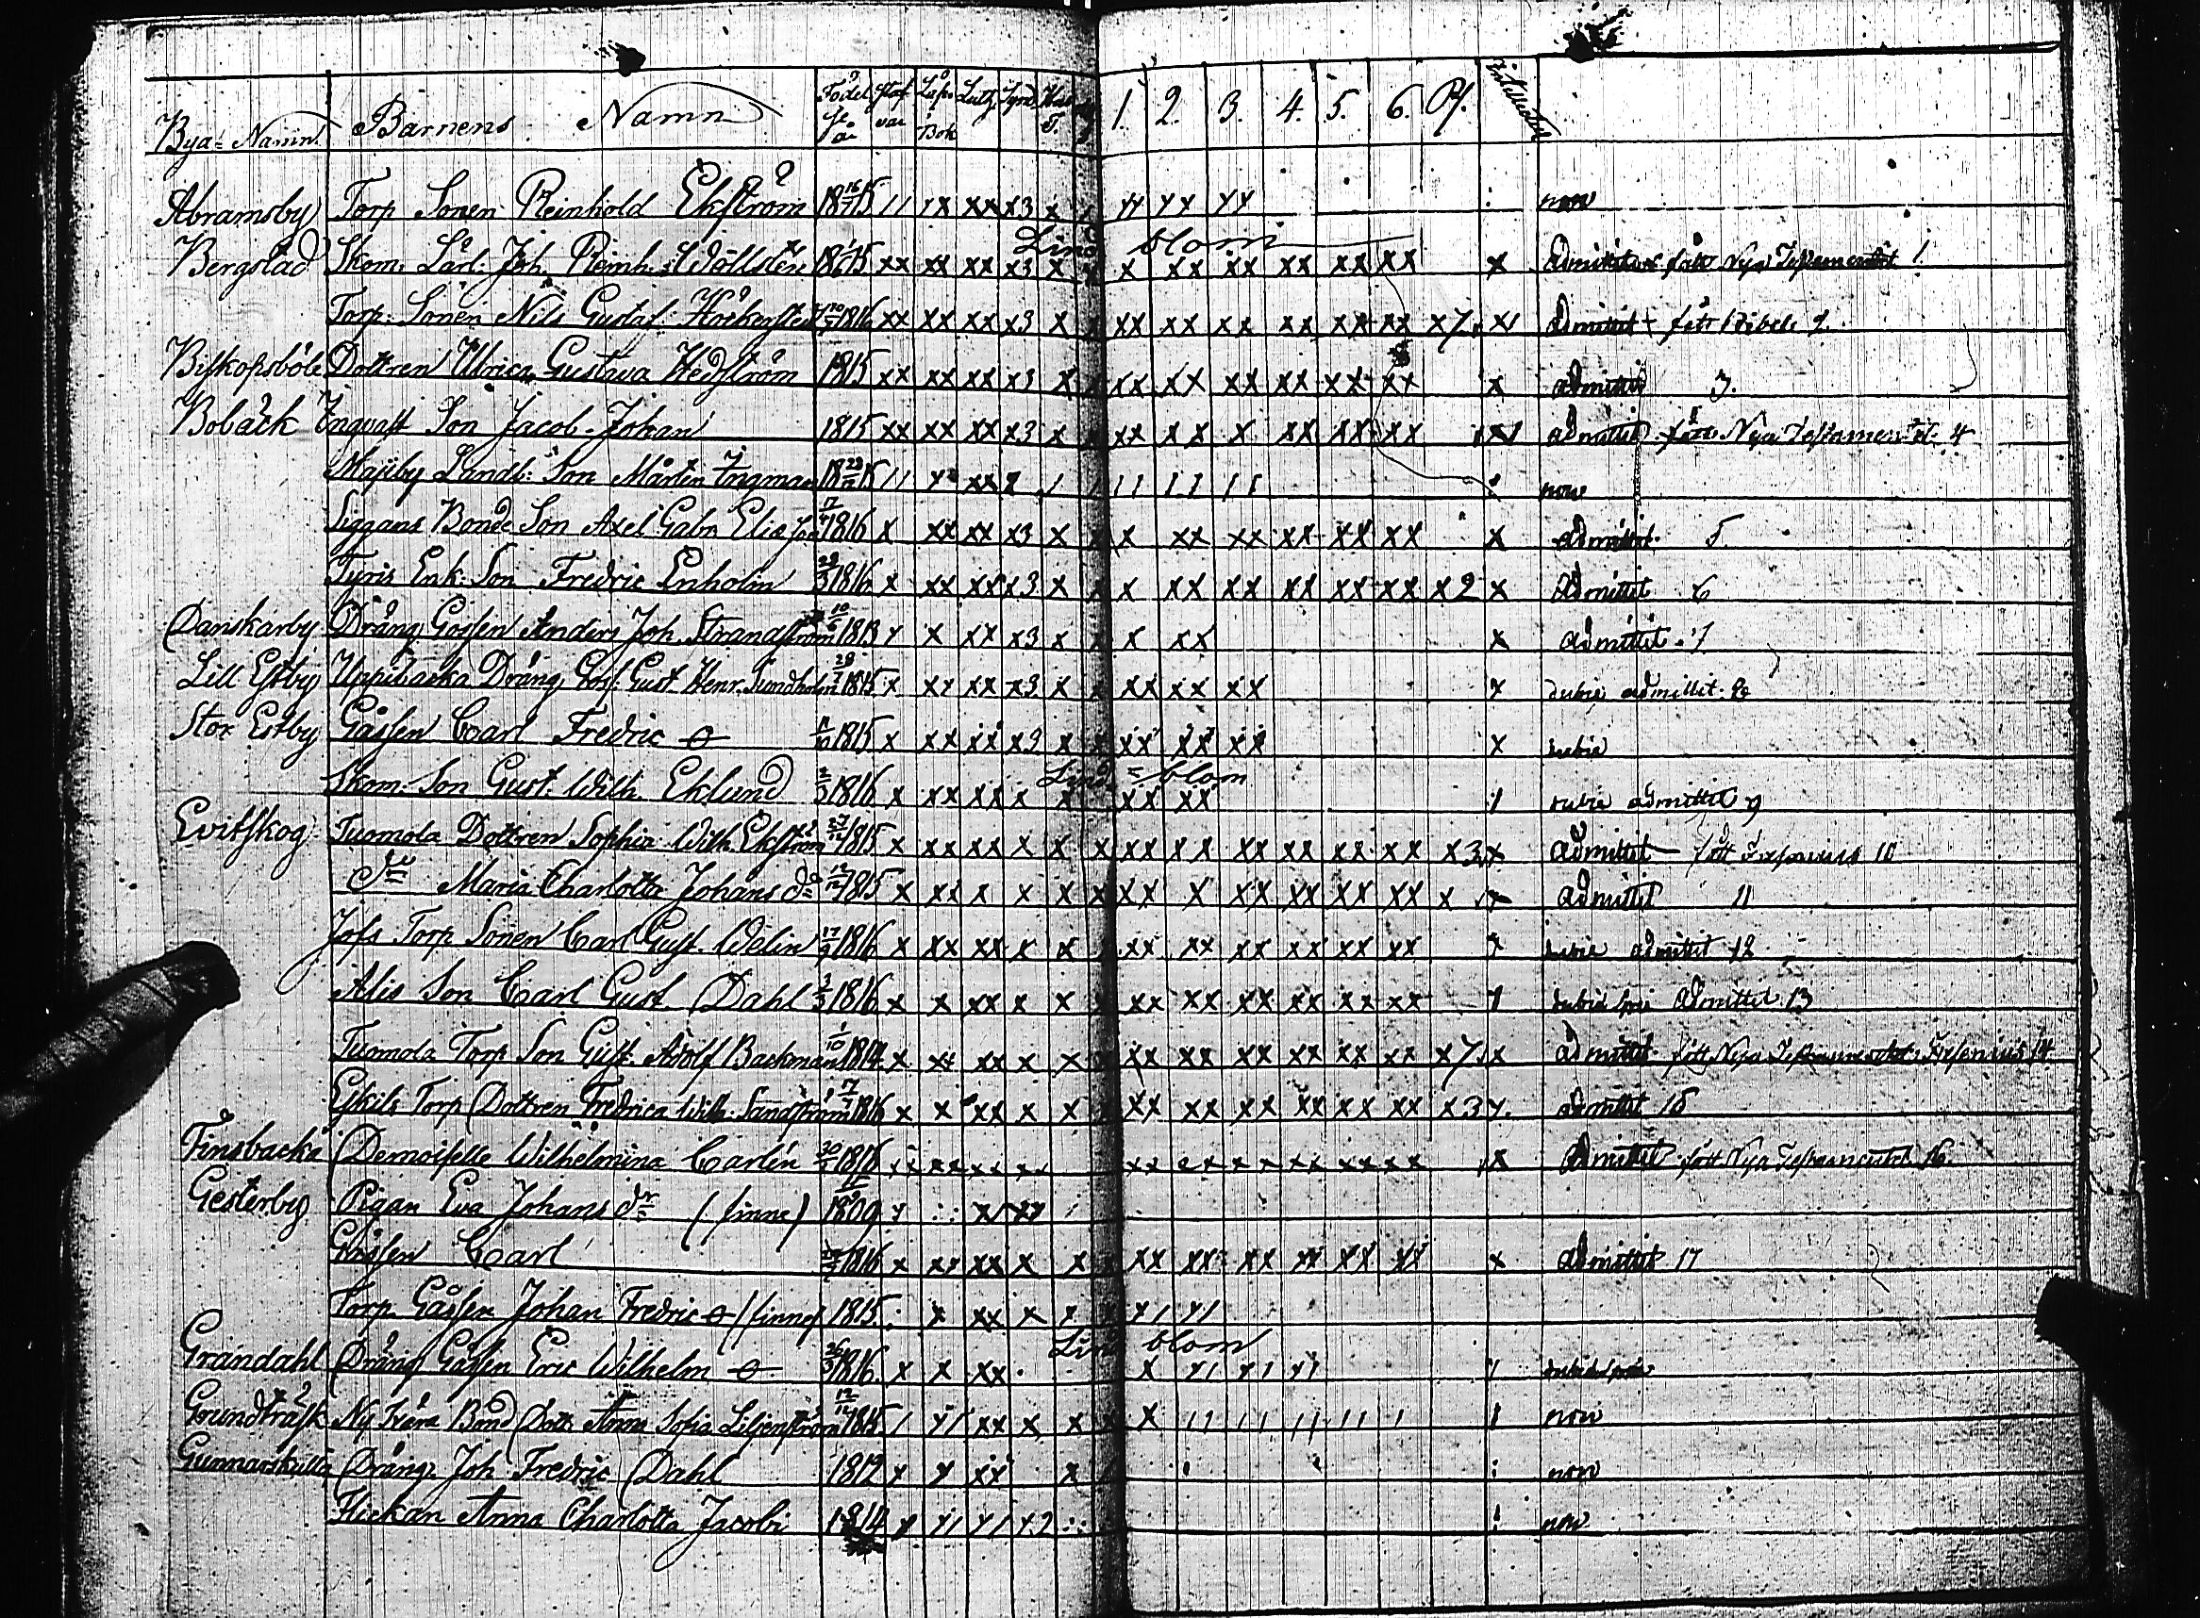 Bya= Namn Barnens Namn Födel se år Staf var Läse Bok Luth. 1. 2. 3. 4. 5. 6. Intellectus
Abramsby Torp Sonen Reinhold Ekström 18 16/7 15 // xx xx x3 x xx xx xx non
Lind blom
Bergstad Skom. Lärl: Joh. Reinh. 1815 xx xx xx x3 x x x xx xx xx xx xx x admittit fått Nya Testamentet 1
Torp. Sonen Nils Gustaf 1816 xx xx xx x3 x x xx xx xx xx xx xx x7 x admittit fått Bibel 2
Biskopsböle Dottren Ulrica Gustava Hedström 1815 xx xx xx x3 x x xx xx xx xx xx xx x admittit 3.
Boback Ingvalt Son Jacob Johan 1815 xx xx xx x3 x x xx xx x xx xx xx x admittit fått Nya Testamentet 4
Majby Landb: Son Mårten Ingman 1815 // xx / / // // // non
Siggans Bonde Son Axel Gabr. Elis 1816 x xx xx x3 x x x xx xx xx xx xx x admittit 5.
Tyris Enk. Son Fredric Enholm 1816 x xx xx x3 x x x xx xx xx xx xx x2 x Admittit 6
Danskarby Dräng Gossen Anders Joh. Strandström 10/5 1813 x x xx x3 x x x xx x Admittit 7
Lill Estby Uppibacka Dräng Goss. Gust. Henr. Sundholm 28/7 1815 x xx xx x3 x x xx xx xx x dubie admittit 8
Stor Estby Gossen Carl Fredric 1815 x xx xx x3 x x xx xx xx x dubie
Lind= blom
Skom. Son Gust. Wilh. Eklund 2/3 1816 x xx xx x x xx xx / dubie admittit 9
Evitskog Tuomola Dottren Sophia Wilh. Ekström 27/12 1815 x xx xx x x x xx xx xx xx xx xx x3 x admittit fått 10
Maria Charlotta Johans dr 12/12 1815 x xx x x x x xx x xx xx xx xx x x admittit 11
Jofs Torp Sonen Carl Gust. Welin 17/9 1816 x xx xx x x x xx xx xx xx xx xx x dubie admittit 12
Alis Son Carl Gust. Dahl 3/3 1816 x x xx x x x xx xx xx xx xx xx dubie Admittit 13
Tuomola Torp Son Gust. Adolf Backman 1/10 1814 x xx xx x x x xx xx xx xx xx xx x7 x admittit fått Nya Testamentet 14
Eskils Torp Dottren Fredrica Wilh. Sandström 1816 x x xx x x x xx xx xx xx xx xx x3 x admittit 15
Finsbacka Demoiselle Wilhelmina Carlén 1816 xx xx xx xx xx xx xx xx xx xx x Admittit fått Nya Testamentet 16
Gesterby Pigan Eva Johans dr (finne) 1809
Gossen Carl 1816 x xx xx x x x xx xx xx xx xx xx x Admittit 17
Torp Gossen Johan Fredric (finne) 1815 x xx x x x x/ x/
Lind blom
Grandahl Dräng Gossen Eric Wilhelm 26/3 1816 x x xx x x/ x/ x/
Grundträsk Bond Dott. Anna Sofia Liljenström 12/12 1815 / x/ xx x x x x // // // // / / non
Gunnarskulla Dräng. Joh Fredric Dahl 1812 x x xx x non
Flickan Anna Charlotta Jacobi 1814 x x/ x/ x2 non